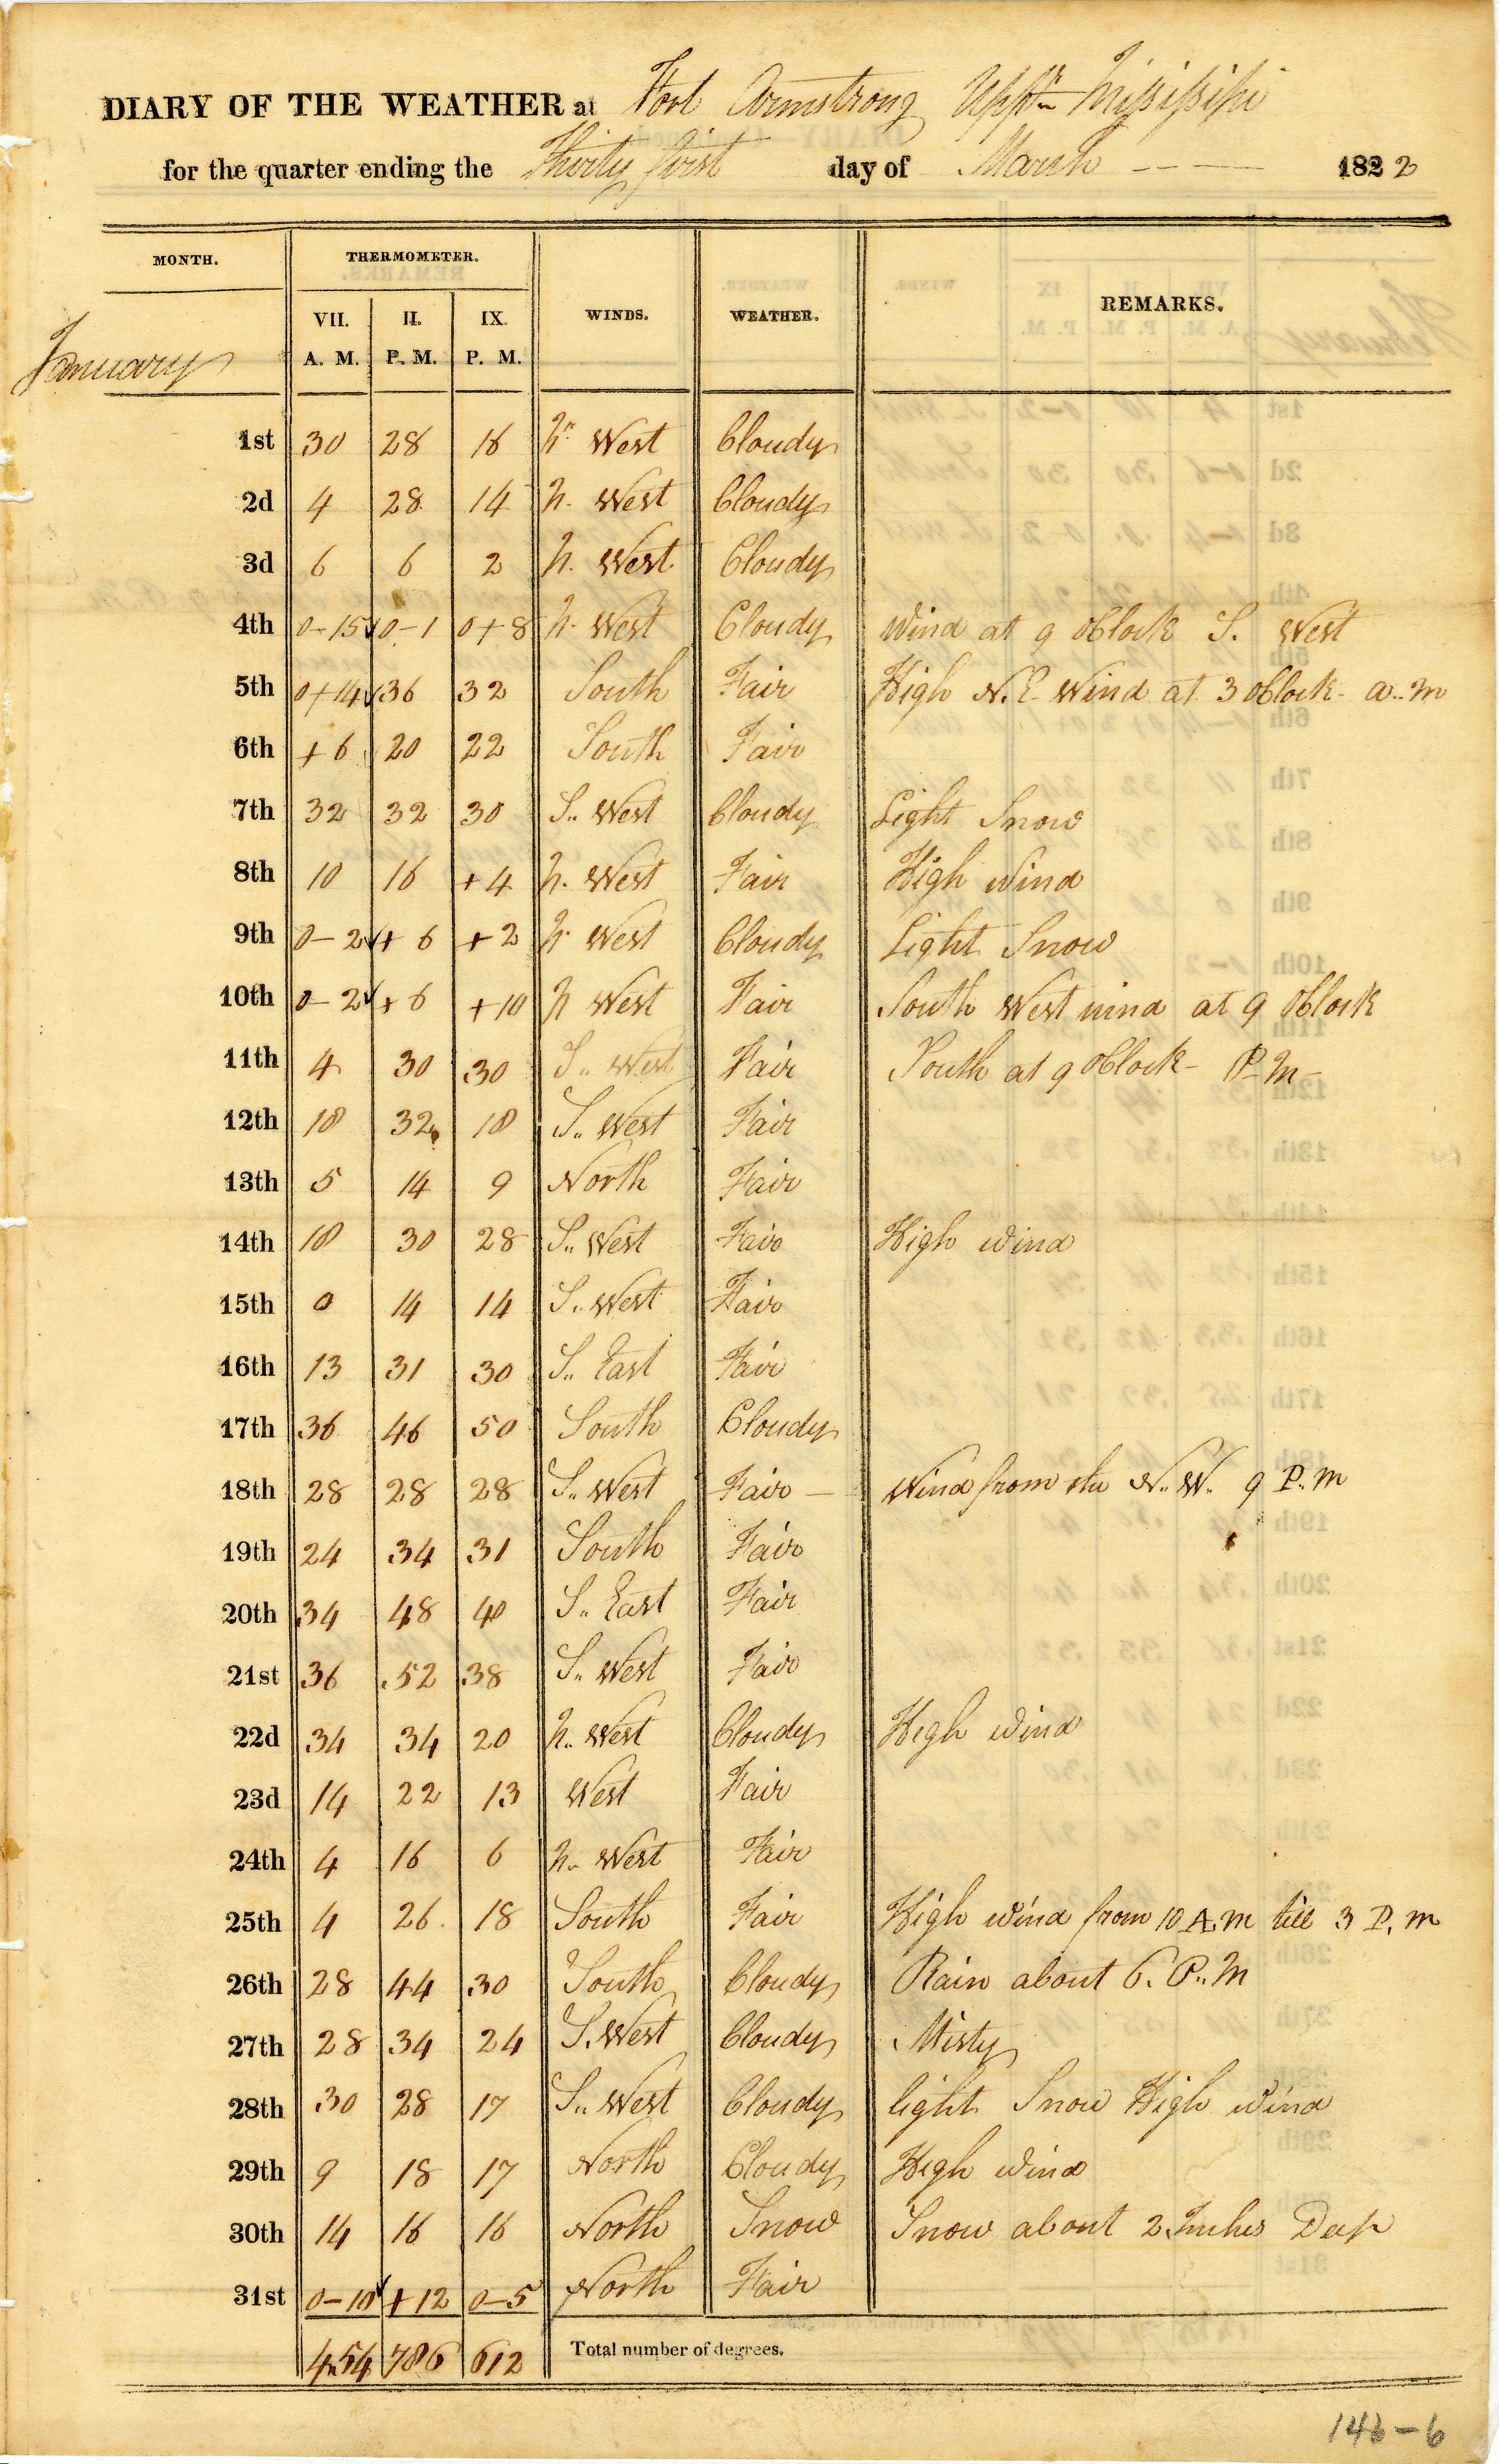 DIARY OF THE WEATHER at Fort Armstrong Uppr Mississippi
for the quarter ending the Thirty first day of March - - — 1822
MONTH. THERMOMETER. WINDS. WEATHER. REMARKS.
VII. II. IX.
A. M. P. M. P. M.
January
1st 30 28 16 N. West Cloudy
2d 4 28 14 N. West Cloudy
3d 6 6 2 N. West Cloudy
4th 0-15 0-1 0+8 N. West Cloudy Wind at 9 oClock S. West
5th 0+14 36 32 South Fair High N.E. Wind at 3 oClock a..m
6th +6 20 22 South Fair
7th 32 32 30 S.. West Cloudy Light Snow
8th 10 16 +4 N. West Fair High Wind
9th 0-2 +6 +2 N. West Cloudy Light Snow
10th 0-2 +6 +10 N West Fair South West wind at 9 OClock
11th 4 30 30 S.. West Fair South at 9 oClock - P-M-
12th 10 32 10 S.. West Fair
13th 5 14 9 North Fair
14th 10 30 28 S.. West Fair High wind
15th 0 14 14 S.. West Fair
16th 13 31 30 S.. East Fair
17th 36 46 50 South Cloudy
18th 28 28 28 S.. West Fair — Wind from the N.. W.. 9 P..m
19th 24 34 31 South Fair
20th 34 48 40 S.. East Fair
21st 36 52 38 S.. West Fair
22d 34 34 20 N.. West Cloudy High wind
23d 14 22 13 West Fair
24th 4 16 6 N.. West Fair
25th 4 26 18 South Fair High wind from 10 A.M till 3 P.M
26th 28 44 30 South Cloudy Rain about 6. P..M
27th 28 34 24 S. West Cloudy Misty
28th 30 28 17 S.. West Cloudy light Snow High wind
29th 9 18 17 North Cloudy High wind
30th 14 16 16 North Snow Snow about 2 Inches Deep
31st 0-10 +12 0-5 North Fair
454 786 612 Total number of degrees.
146-6